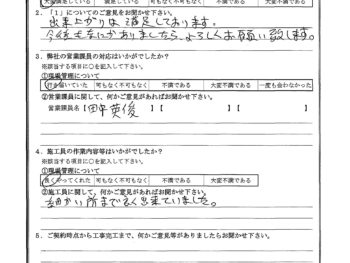 大変満足している 満足している 可もなく不可もなく 不満である 大変不満である
2.「1」についてのご意見をお聞かせ下さい。
出来上がりは満足しております。
今後もなにかありましたら、よろしくお願い致します。
3.弊社の営業課員の対応はいかがでしたか？
※該当する項目に○を記入して下さい。
①現場管理について
行き届いていた 可もなく不可もなく 不満である 大変不満である 一度も会わなかった
②営業課員に関して、何かご意見があればお聞かせ下さい。
営業課員名【田中 英俊 】【 】【 】
4.施工員の作業内容等はいかがでしたか？
※該当する項目に○を記入して下さい。
①現場管理について
良くやってくれた 可もなく不可もなく 不満である 大変不満である
②施工員に関して、何かご意見があればお聞かせ下さい。
細かい所までよく出来ていました。
5.ご契約時点から工事完工まで、何かご意見等がありましたらお聞かせ下さい。